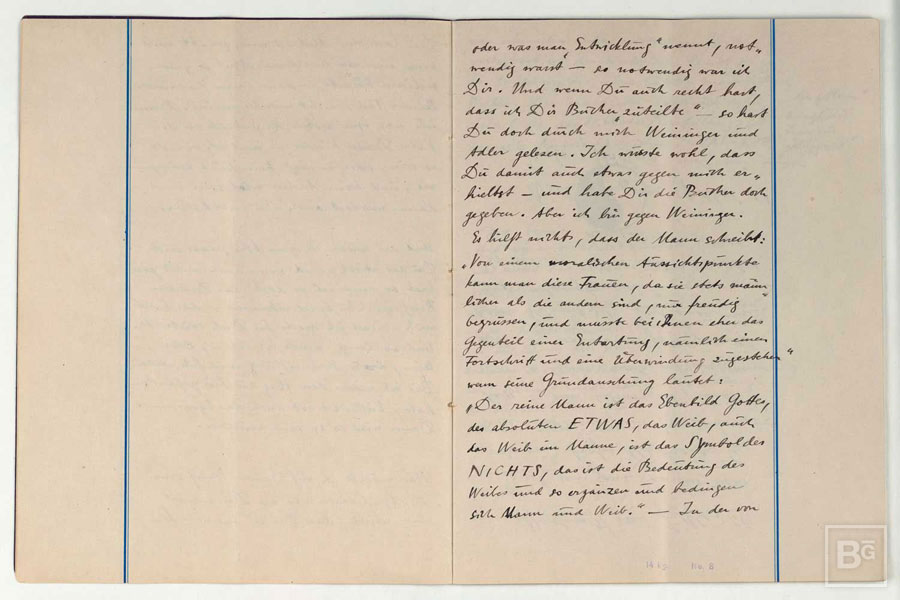 oder was man „Entwicklung“ nennt, not-
wendig warst — so notwendig war ich
Dir. Und wenn Du auch recht hast,
dass ich Dir Bücher „zuteilte“ — so hast
Du doch durch mich Weininger und
Adler gelesen. Ich wusste wohl, dass
Du damit auch etwas gegen mich er-
hieltst — und habe Dir die Bücher doch
gegeben. Aber ich bin gegen Weininger.
Es hilft nichts, dass der Mann schreibt:
„Von einem moralischen Aussichtspunkte
kann man diese Frauen, da sie stets männ-
licher als die andern sind, nur freudig
begrüssen, und müsste bei ihnen eher das
Gegenteil einer Entartung, nämlich einen
Fortschritt und eine Überwindung zugestehen“
wenn seine Grundanschung lautet:
„Der reine Mann ist das Ebenbild Gottes,
des absoluten ETWAS, das Weib, auch
das Weib im Manne, ist das Symbol des
NICHTS, das ist die Bedeutung des
Weibes und so ergänzen und bedingen
sich Mann und Weib.“ — In der von
No. 8
BG